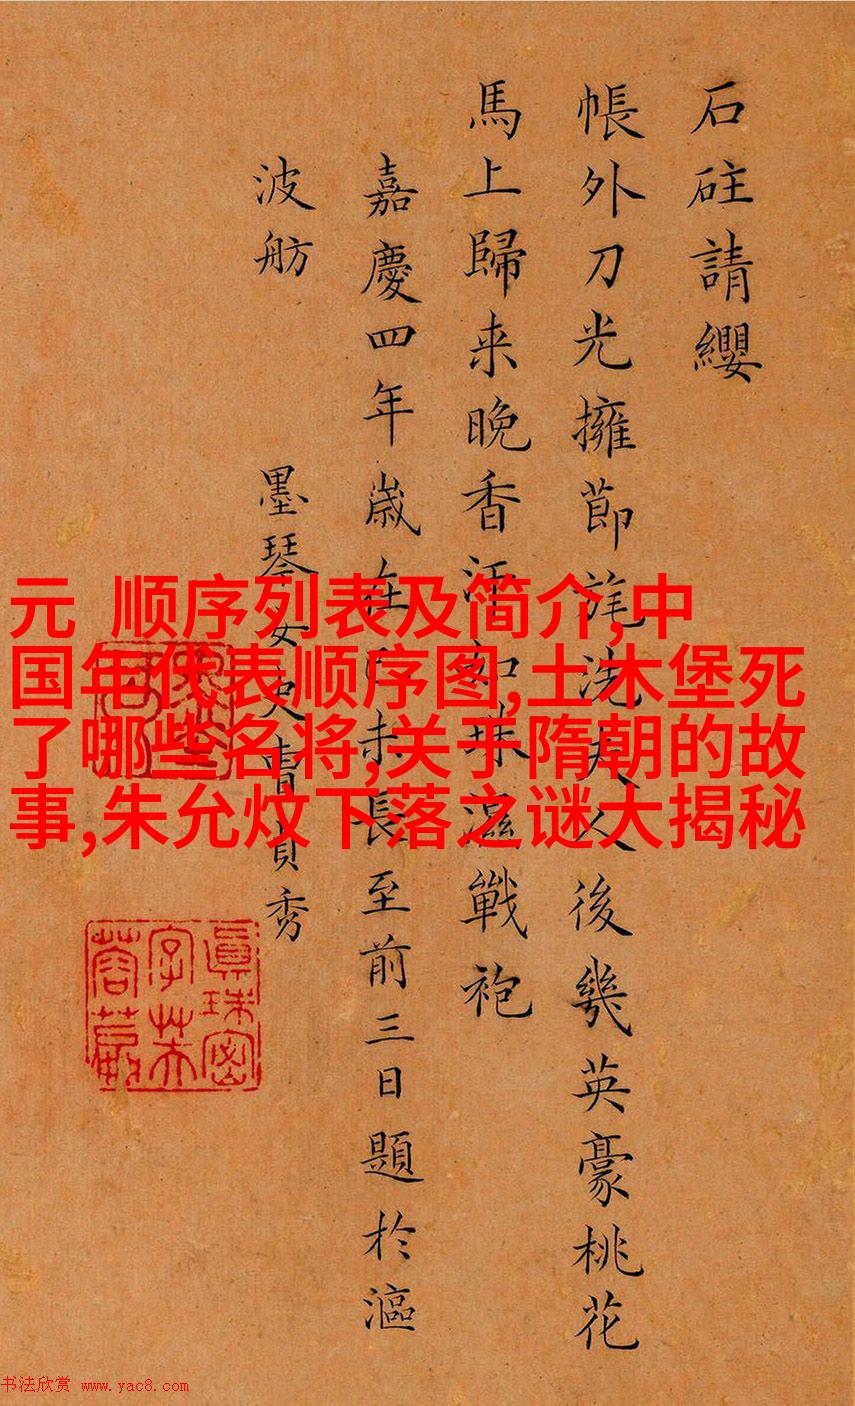 石砫請纓
帳外刀光擁節旄洗夫人後幾英豪桃花
馬上歸来晚香汗如珠濕戰袍
嘉慶四年歲在己未長至前三日題於漚
波舫
墨琴女史曹貞秀
元 顺序列表及简介,中
国年代表顺序图,土木堡死
了哪些名将,关于隋朝的故
事,朱允炆下落之谜大揭秘
書法欣赏 www.yac8.com